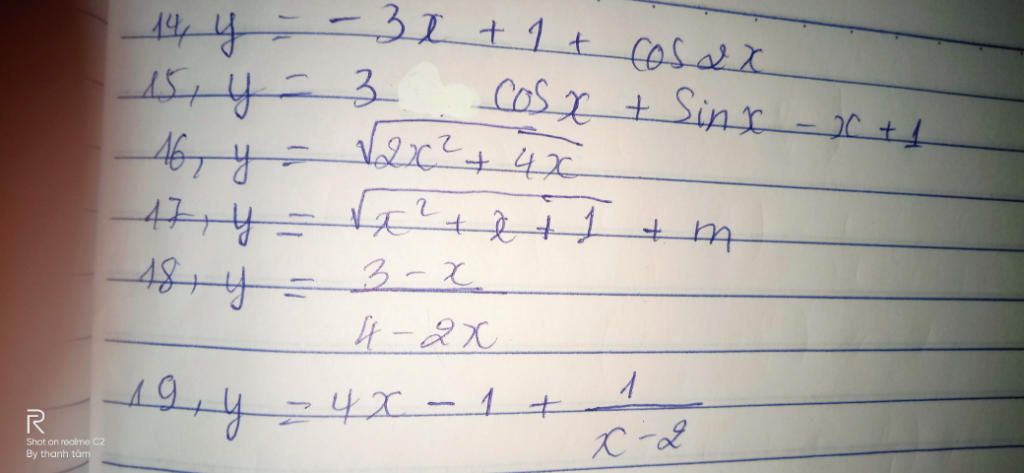 14, y = -3x + 1 + cos2x
15, y = 3 cosx + Sinx - x + 1
16, y = √(2x² + 4x)
17, y = √(x² + x + 1) + m
18, y = (3 - x)/(4 - 2x)
19, y = 4x - 1 + 1/(x - 2)
R
Shot on realme C2
By thanh tâm